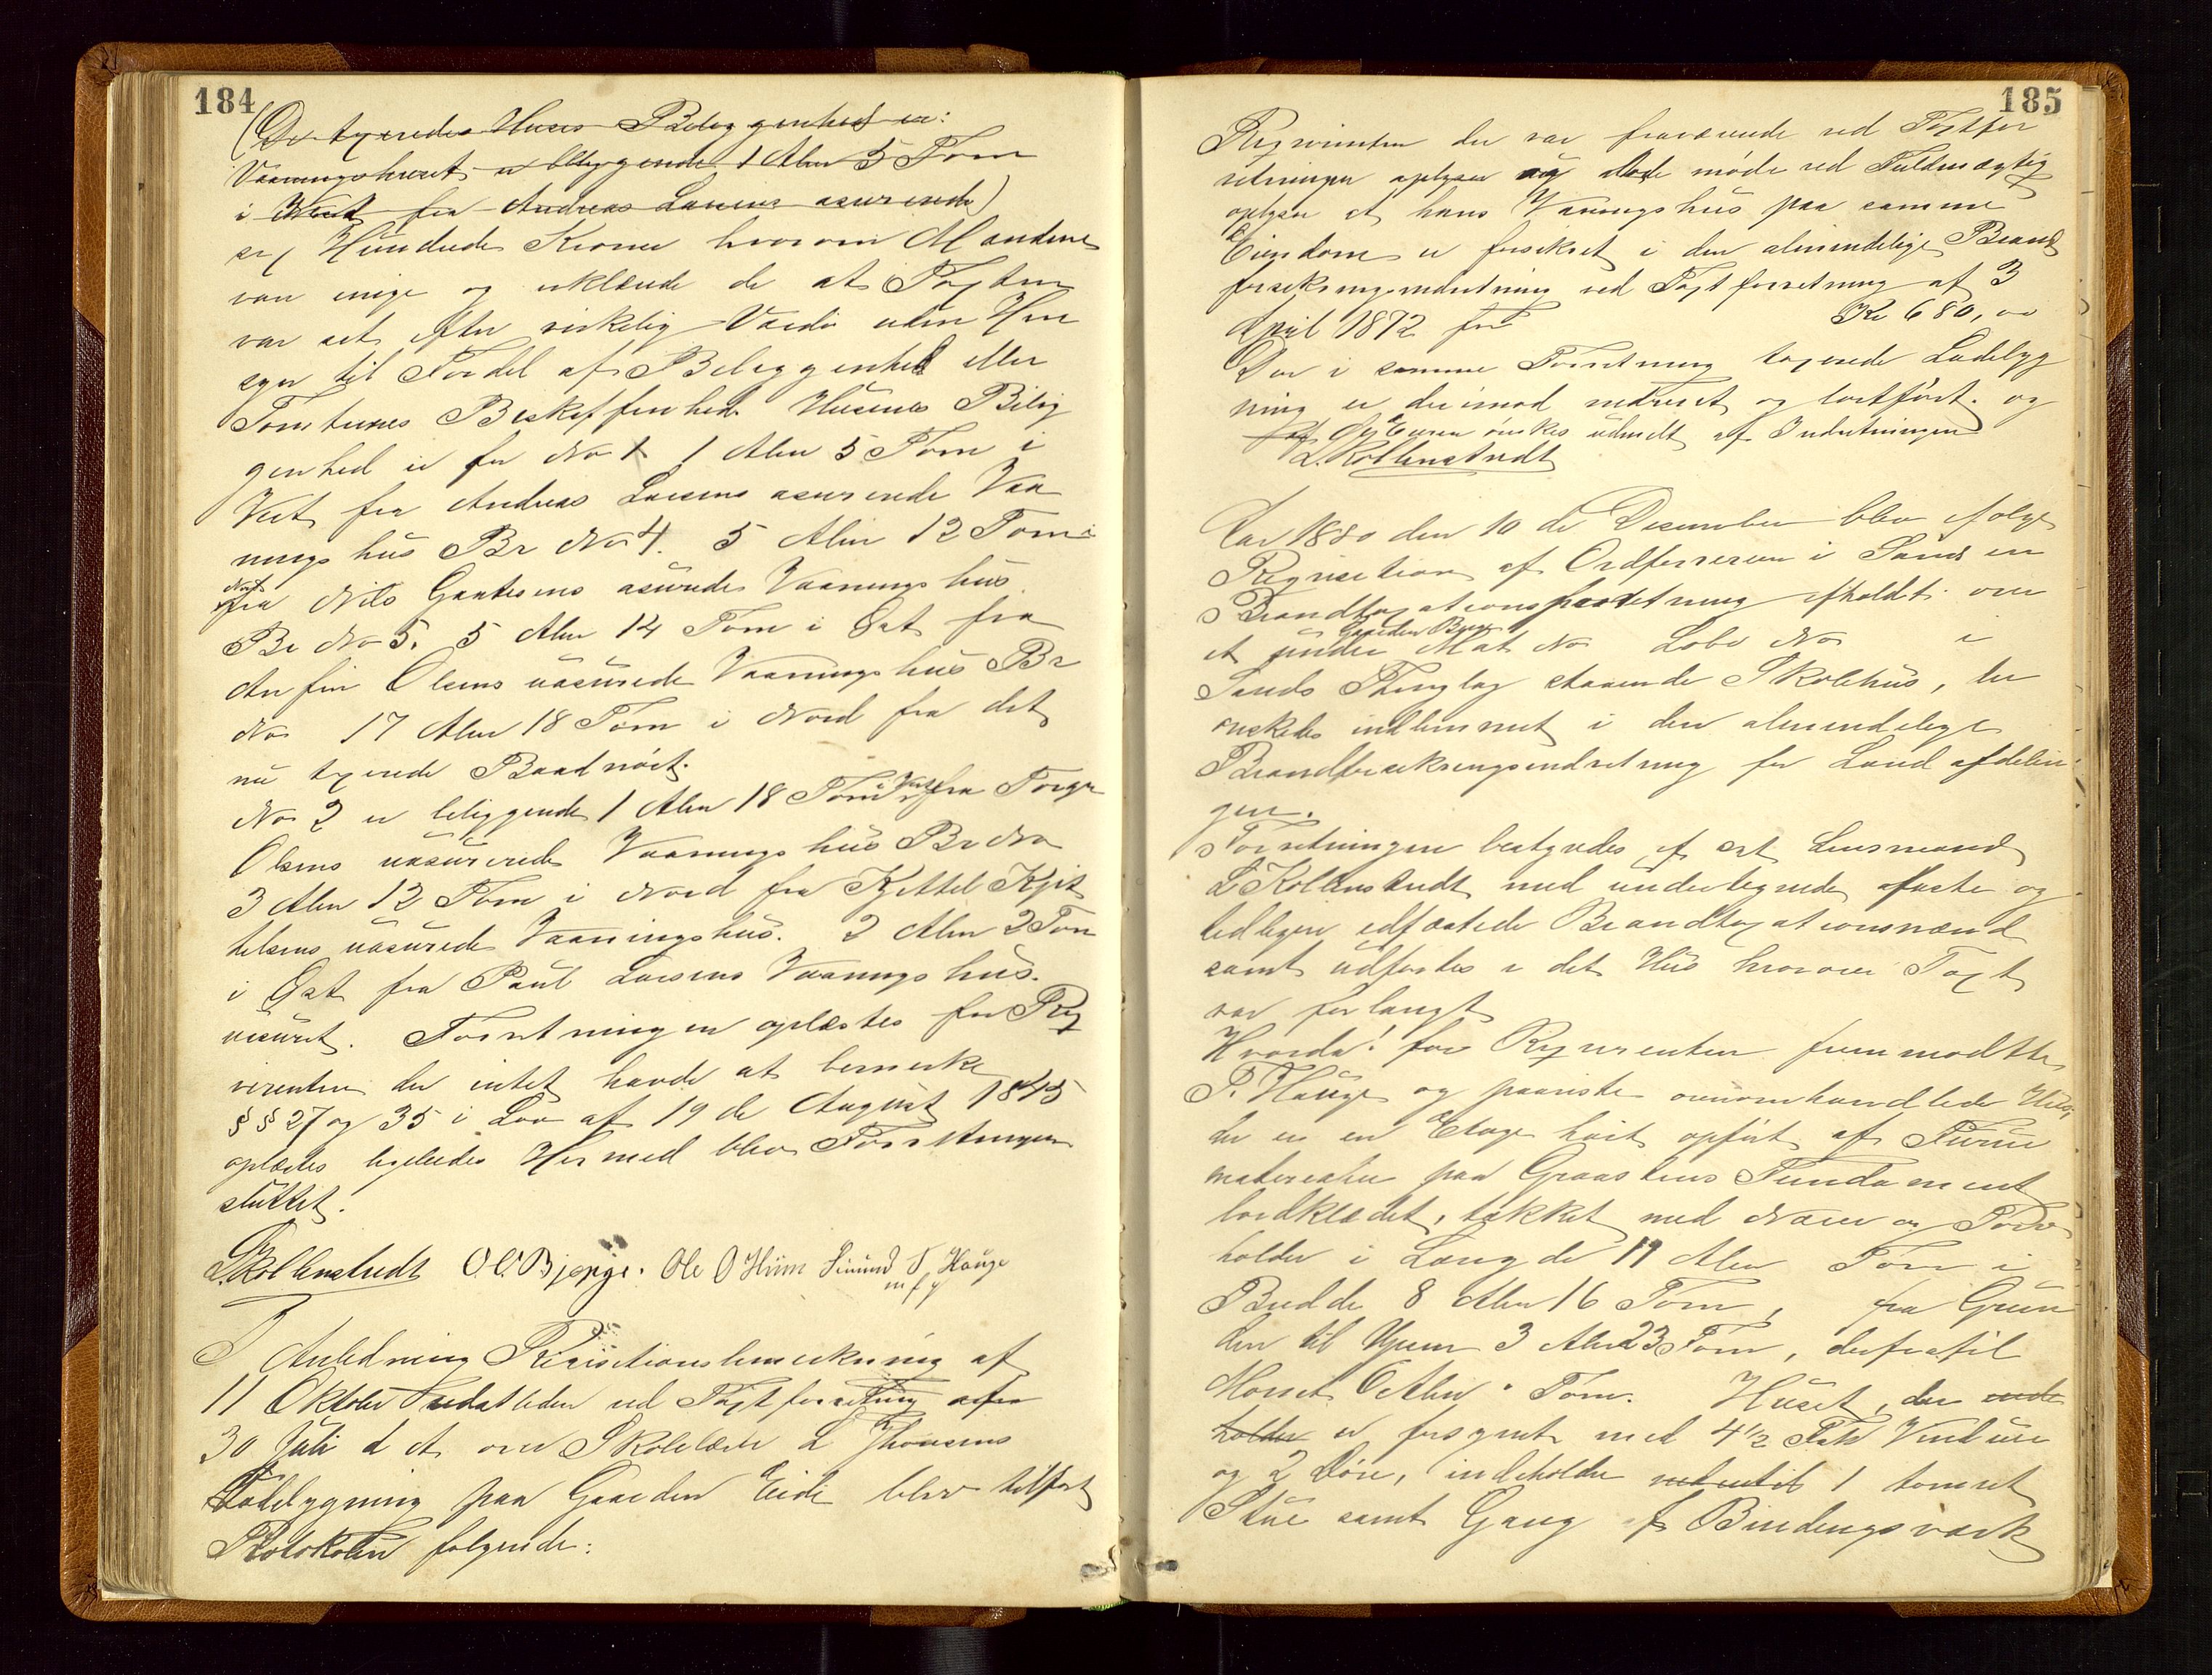 184
(De taxerede Huses Beliggenhed er:
Vaaningshuset er beliggende 1 Alen 5 Tom
i Vest fra Andreas Larsens asurerede)
er, Hundrede Kroner hvorom Mændene
var enige og erklærede de at Taxten
var sat efter virkelig Værdi uden Hen
syn til Fordel af Beliggenhed eller
Tomternes Beskaffenhed. Husenes Belig
genhed er for No 1 1 Alen 5 Tom i
Vest fra Andreas Larsens asurerede Vaa
nings hus Br No 4. 5 Alen 12 Tom i
Nord
fra Nils Gautesens asurede Vaanings hus
Br No 5. 5 Alen 14 Tom i Øst fra
Anfin Olsens uasurede Vaanings hus Br
No 17 Alen 18 Tom i Nord fra det
nu taxerede Baadnøst.
No 2 er beliggende 1 Alen 18 Tom i Vest fra Torger
Olsens uasurerede Vaanings hus Br No
3 Alen 12 Tom i Nord fra Kjettel Kjet
telsens uasurede Vaaningshus. 2 Alen 2 Tom
i Øst fra Paul Larsens Vaanings hus.
uasuret. Forretningen oplæstes for Reqv
virenten der intet havde at bemerke
§§ 27 og 35 i Lov af 19 de August 1845
oplæstes ligeledes Hermed blev Forretningen
sluttet.
L. Kollenstedt O. O. Bjerge. Ole O Hiim Simund T. Hauge
m f p
I Anledning Reqvisitionsbemerkning af
11 Oktober sidstleden ved Taxtforretning afen
30 Juli d A over Skolelærer L Thorsens
Ladebygning paa Gaarden Eide blev tilført
Protokollen følgende:
185
Reqvirenten der var fraværende ved Taxtfor
retningen oplyser og lod møde ved Fuldmægtig
oplyser at hans Vaaningshus paa samme
Eiendom er forsikret i den almindelige Brand
forsikringsindretning ved Taxtforretning af 3
April 1872 for Kr 680,00
Den i samme Forretning taxerede Ladebyg
ning er derimod nedrevet og bortført. og
af Ejeren ønskes udmeldt af Indretningen
L. Kollenstedt
Aar 1880 den 10 de December blev efølge
Reqvisition af Ordføreren i Sand en
Brandtaxationsforretning afholdt over
Gaarden Br
et under Mat No Løbe No i
Sands Thinglag staaende Skolehus, der
ønskedes indlemmet i den almindelige
Brandforsikringsindretning for Land afdelin
gen.
Forretningen bestyredes af cst Lensmand
L Kollenstedt med undertegnede faste og
lidligere edfæstede Brandtaxationsmænd
samt udførtes i det Hus hvorover Taxt
var forlangt
Hvorda: for Reqvirenten fremmødte
P. Hauge og paaviste ovenomhandlede Hus,
der er en Etage høit opført af Furue
materialier paa Graastens Fundament
bordklædet, tækket med Næver og Torv
holder i Længde 19 Alen Tom i
Bredde 8 Alen 16 Tom, fra Grun
den til Upsen 3 Alen 23 Tom, derfra til
Mønet 6 Alen " Tom. Huset, der inde
holder er forsynet med 4 1/2 Fak Vinduer
og 2 Døre, indeholder nedentil 1 tømret
Stue samt Gang af Bindingsværk